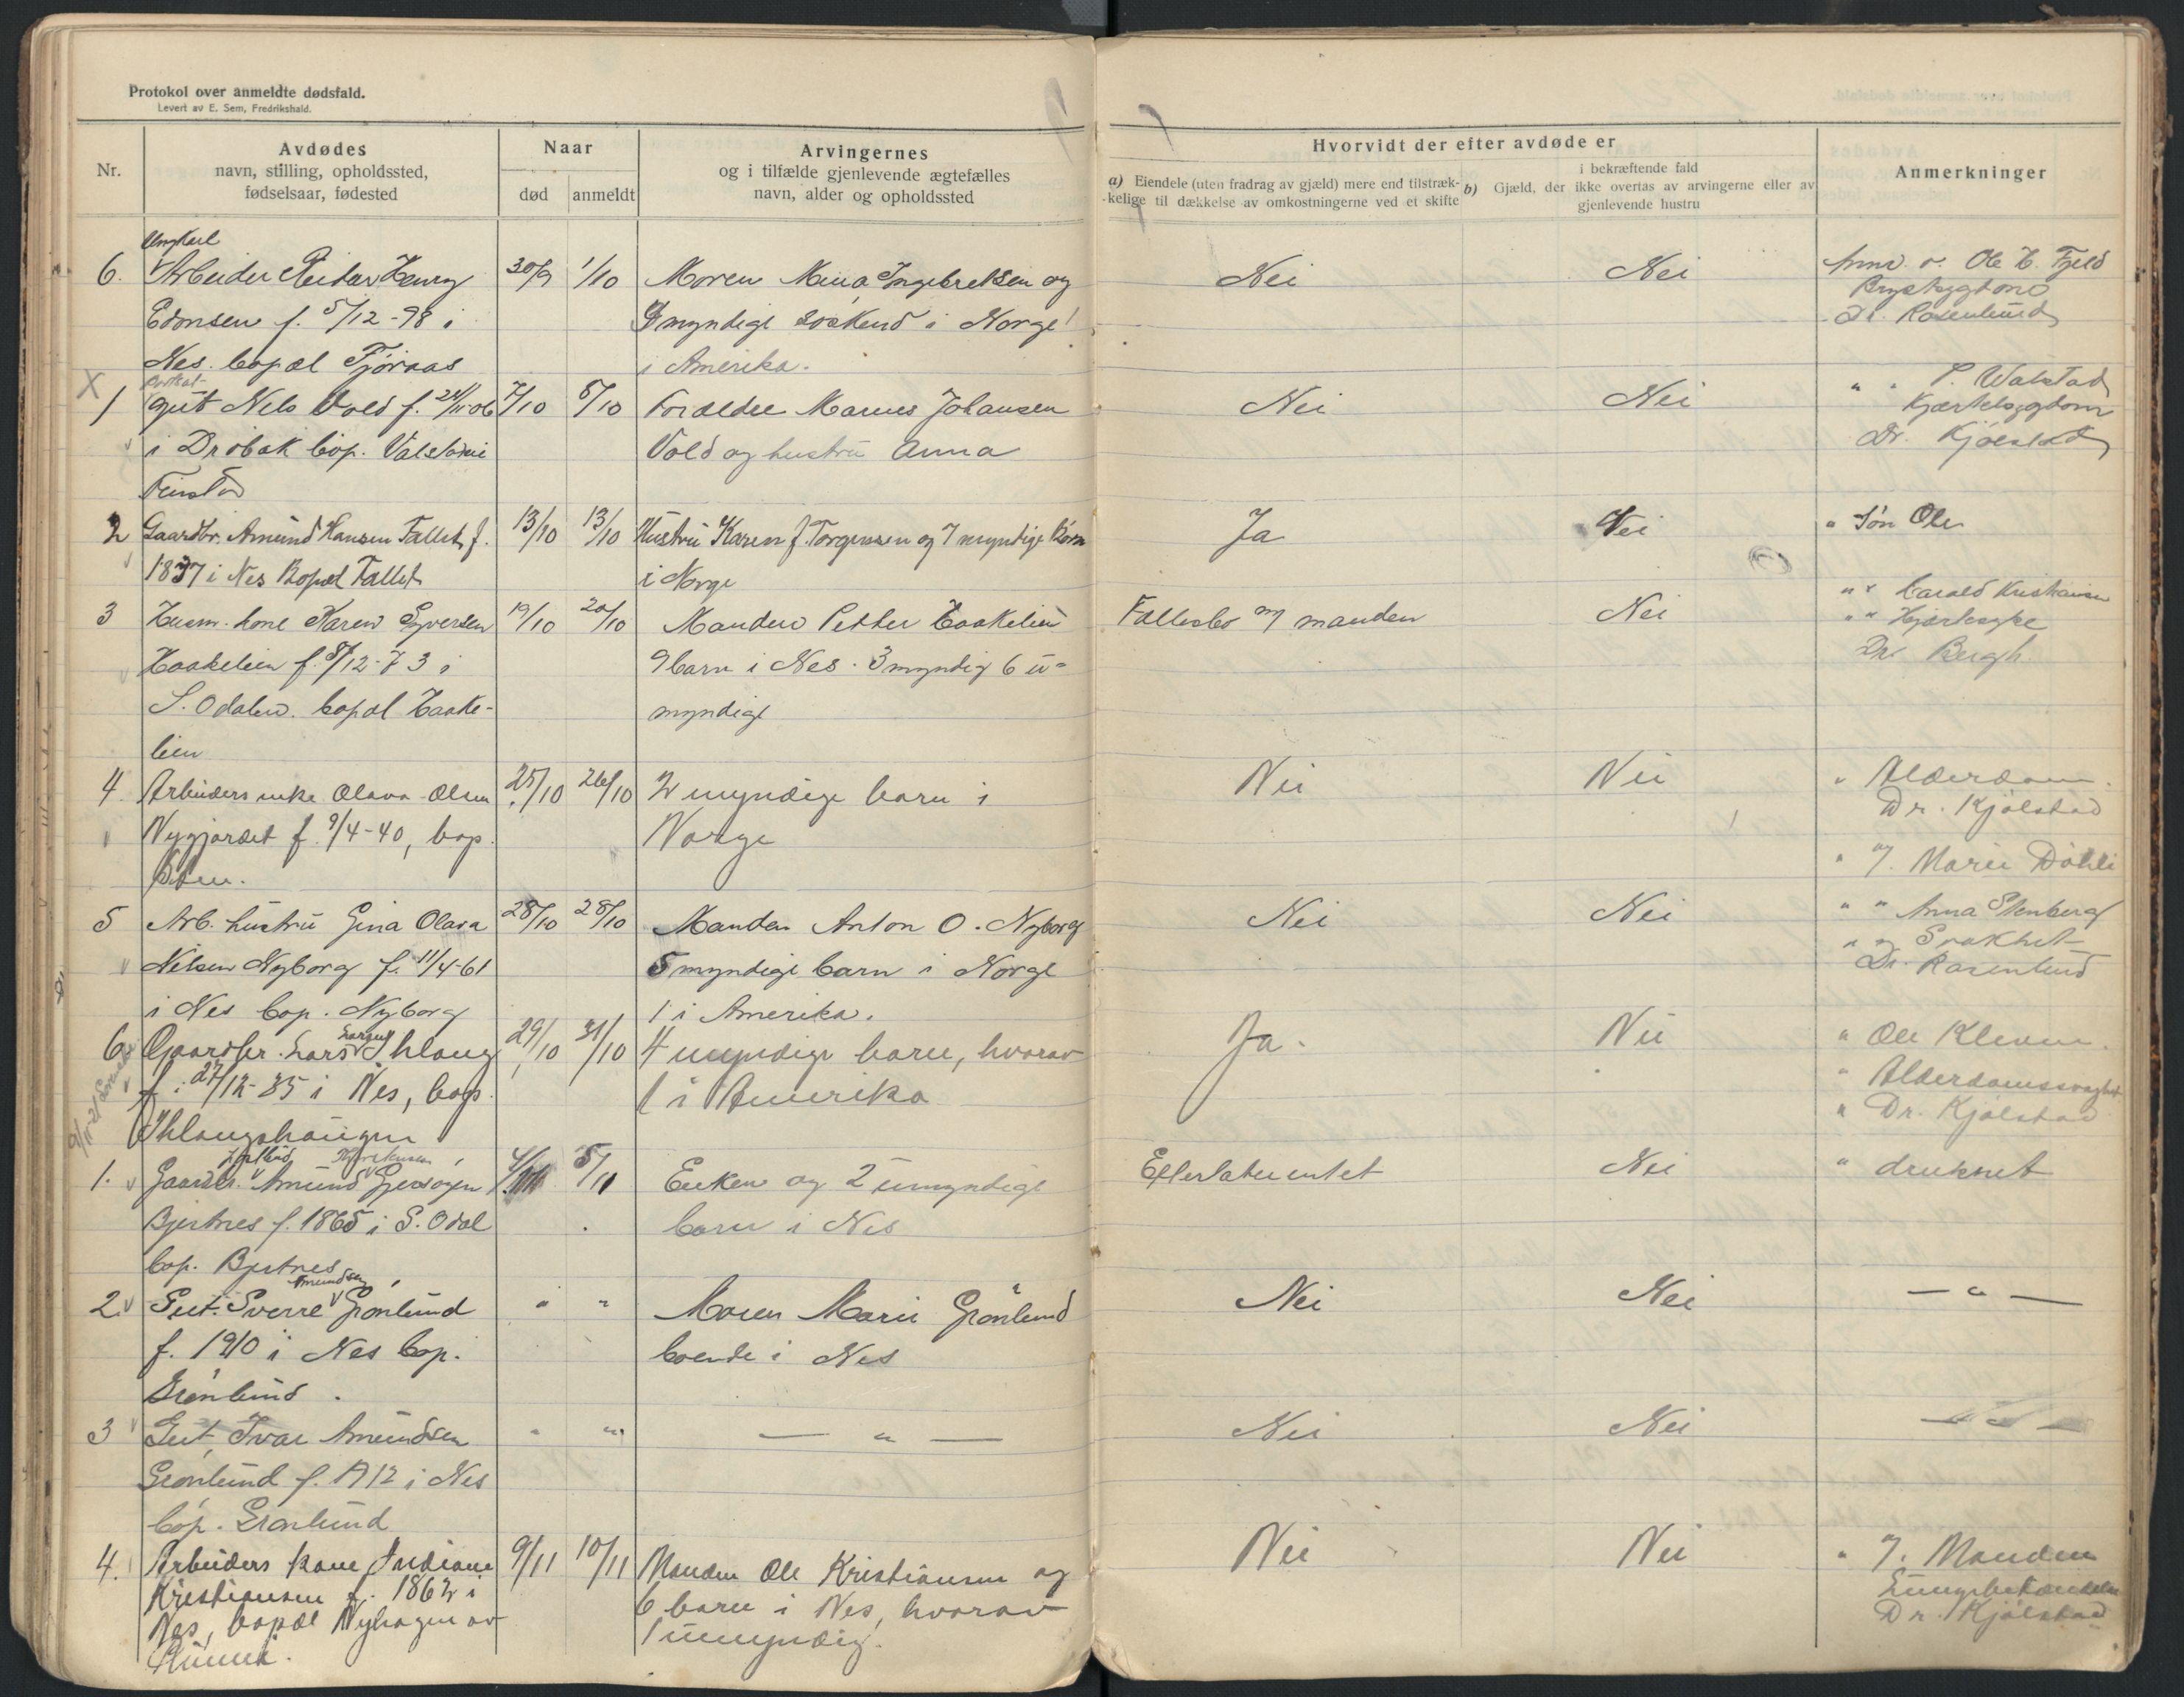 Protokol over anmeldte dødsfald.
Levert av E. Sem, Fredrikshald.
Nr.
Avdødes
navn, stilling, opholdssted,
fødselsaar, fødested
Naar
død
anmeldt
Arvingernes
og i tilfælde gjenlevende ægtefælles
navn, alder og opholdssted
Hvorvidt der efter avdøde er
a) Eiendele (uten fradrag av gjæld) mere end tilstræk-
kelige til dækkelse av omkostningerne ved et skifte
i bekræftende fald
b) Gjæld, der ikke overtas av arvingerne eller av
gjenlevende hustru
Anmerkninger
Ungkarl
6. Arbeider Reidar Henry 30/9 1/10 Moren Mina Ingebretsen og Nei Nei Anm. v. Ole H. Fjeld
Edvnsen f. 5/12-98 i myndige søskend i Norge 1 Brystsygdom
Nes. bopæl Fjøraas i Amerika. Dr. Rosenlund
X
1 gut Nels Vold f. 24/11-06 7/10 8/10 Forældre Marius Johansen Nei Nei " " P. Walstad
i Drøbak bop. Vold og hustru Anna Kjertelsygdom
Finstad Dr. Kjølstad
2 Gaardbr. Amund Hansen Fallet f. 13/10 13/10 Hustru Karen f. Torgersen og 7 myndige Børn Ja Nei " Søn Ole
1837 i Nes Bopæl Fallet i Norge
3 Husm. kone Karen Syversen 19/10 20/10 Manden Petter Haakelien Fællesbo m manden Nei " " Harald Kristiansen
Haakelien f. 8/12-73 i 9 barn i Nes. 3 myndig 6 u- " " Hjertesyke
S. Odalen. bopæl Haake- myndige Dr. Bergh
lien
4. Arbeiders enke Olava Olsen 25/10 26/10 2 myndige barn i Nei Nei " Alderdom.
Nygjordet f. 9/4-40, bop. Norge Dr. Kjølstad
" 7. Marie Døhli
5 Arb. hustru Gina Olava 28/10 28/10 Manden Anton O. Nyborg Nei Nei " " Anna Stenberg
Nilsen Nyborg f. 11/4-61 5 myndige barn i Norge Svakhet
i Nes bop. Nyborg 1 i Amerika. Dr. Rosenlund
Larsen
6 Gaardbr. Lars Ihlang 29/10 31/10 4 myndige barn, hvorav Ja. Nei " Ole Kleven.
f. 27/12-35 i Nes, bop. 1 i Amerika " Alderdomssvaghet
Ihlangshaugen " Dr. Kjølstad
1. Gaardbr. Amund Gjersøyen 4/11 5/11 Enken og 2 umyndige Efterlater intet Nei " druknet
Bjertnes f. 1865 i S. Odal barn i Nes
bop. Bjertnes
Amundsen
2. Gut. Sverre Grønlund " " Moren Marie Grønlund Nei Nei — " —
f. 1910 i Nes bop. boende i Nes
Grønlund.
3 Gut Ivar Amundsen " " — " — Nei Nei — " —
Grønlund f. 1912 i Nes
bop. Grønlund
4. Arbeiders kone Indiane 9/11 10/11 Manden Ole Kristiansen og Nei Nei " 7. Manden
Kristiansen f. 1862 i 6 barn i Nes, hvorav Lungebetændelse
Nes, bopæl Nyhagen av 1 umyndig. Dr. Kjølstad